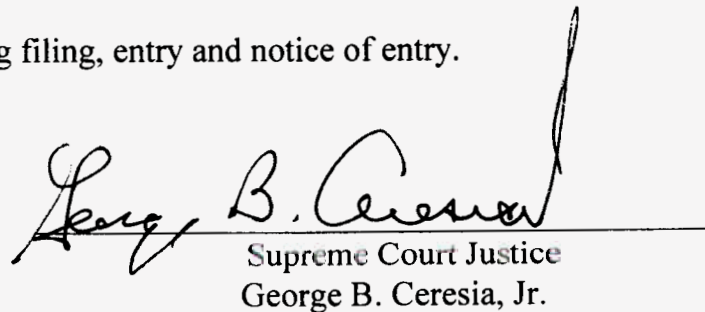 g filing, entry and notice of entry.
George B. Ceresia
Supreme Court Justice
George B. Ceresia, Jr.